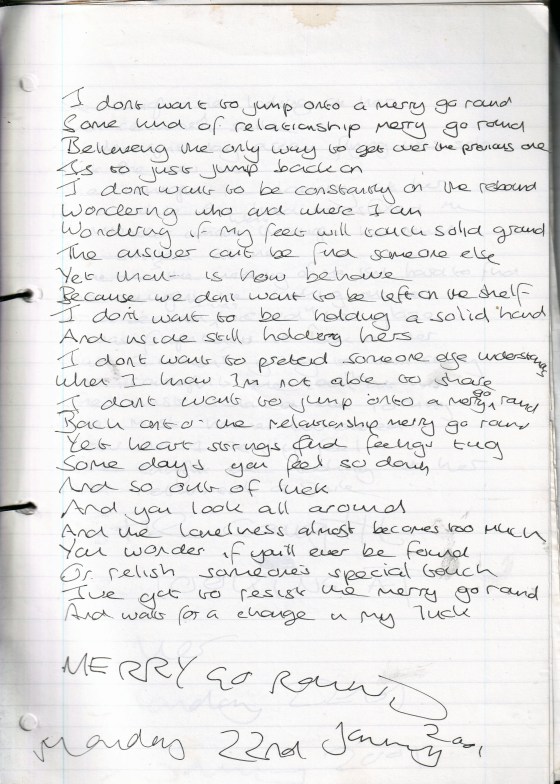 I dont want to jump onto a merry go round
Some kind of relationship merry go round
Believeng the only way to get over the previous one
Is to just jump back on
I dont want to be constantly on the rebound
Wondering who and where I am
Wondering if my feet will touch solid ground
The answer cant be find someone else
Yet that is how behave
Because we dont want to be left on the shelf
I don't want to be holding a solid hand
And inside still holding hers
I dont want to pretend someone else understands
When I know Im not able to share
I dont want to jump onto a merry go round
Back onto the relationship merry go round
Yet heart strings and feelings tug
Some days you feel so down
And so out of luck
And you look all around
And the loneliness almost becomes too much
You wonder if you'll ever be found
Or relish someone's special touch
I've got to resist the merry go round
And wait for a change in my luck
MERRY GO ROUND
Monday 22nd January 2001